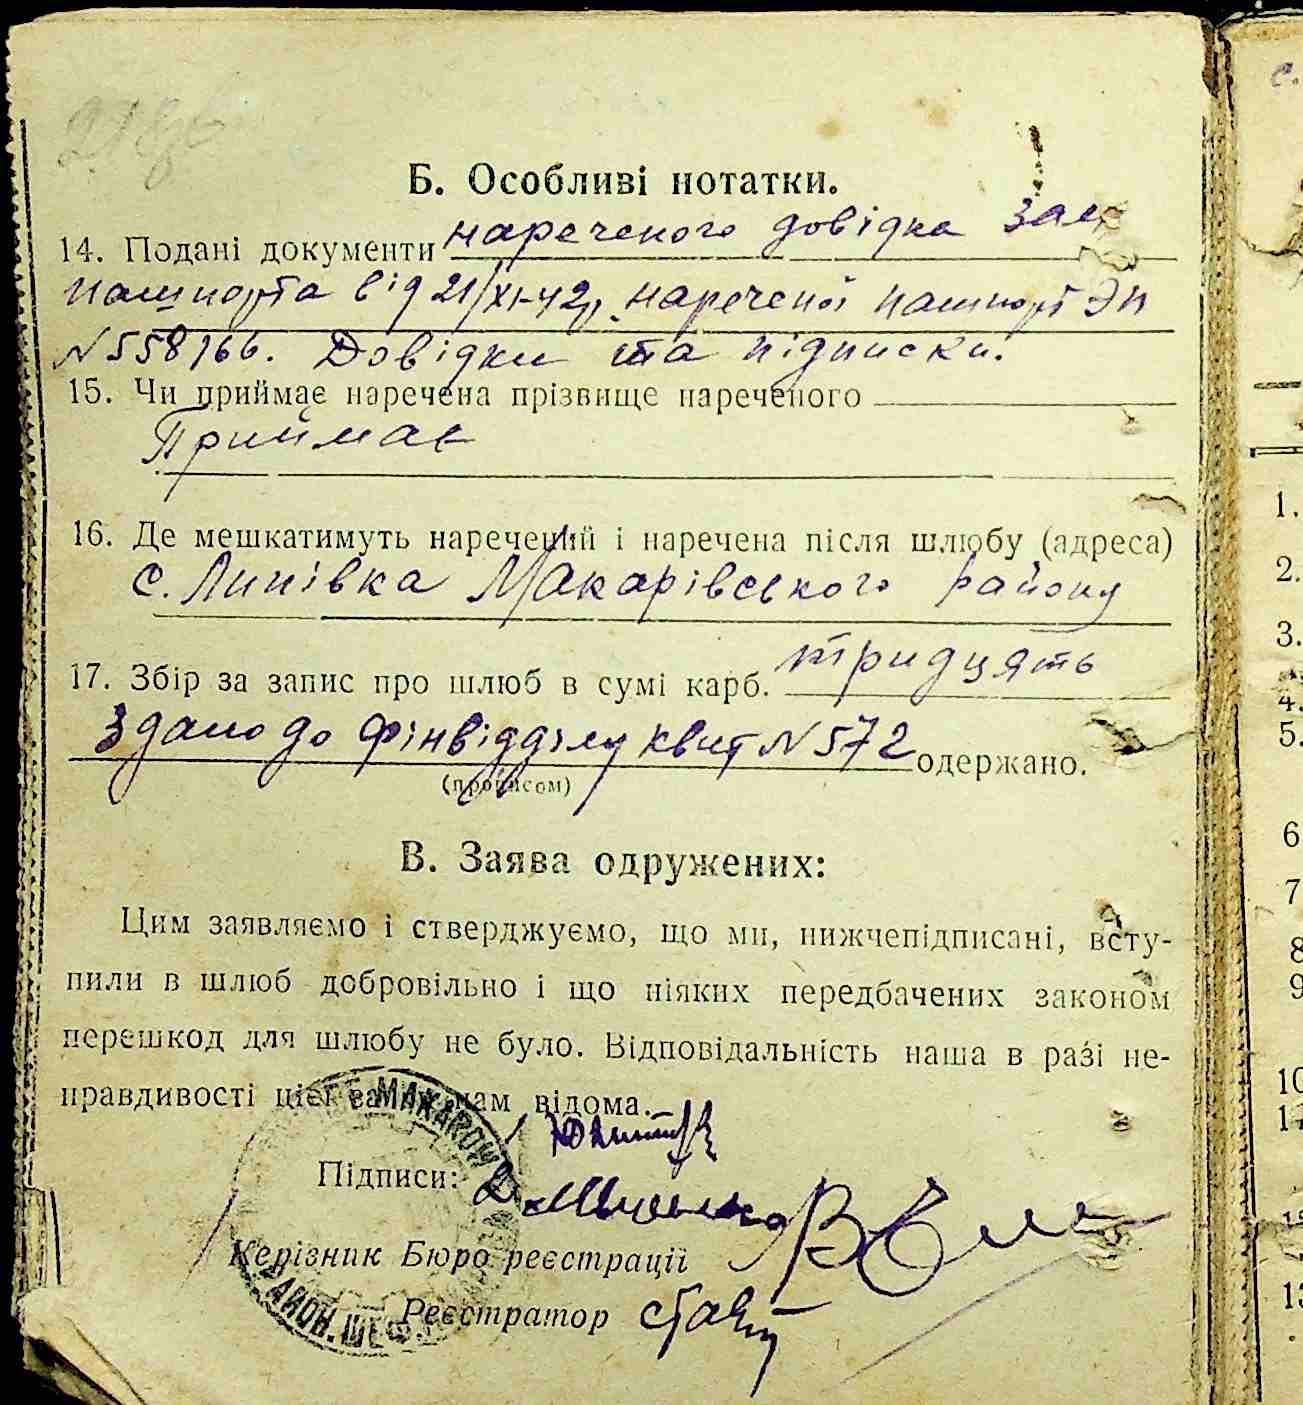 Б. Особливі нотатки.
14. Подані документи нареченого довідка зам.
пашпорта від 21/XI-42р. нареченої пашпорт ЭП
№ 558166. Довідки та підписки.
15. Чи приймає наречена прізвище нареченого
Приймає
16. Де мешкатимуть наречений і наречена після шлюбу (адреса)
с. Липівка Макарівського району
17. Збір за запис про шлюб в сумі карб. тридцять
Здано до фінвідділу квит № 572 одержано.
(прописом)
В. Заява одружених:
Цим заявляємо і стверджуємо, що ми, нижчепідписані, всту-
пили в шлюб добровільно і що ніяких передбачених законом
перешкод для шлюбу не було. Відповідальність наша в разі не-
правдивості цієї заяви нам відома.
MAKAROW
Підписи:
Керізник Бюро реєстрації
Реєстратор
С.
1.
2.
3.
4.
5.
6
7
8
9
10
11